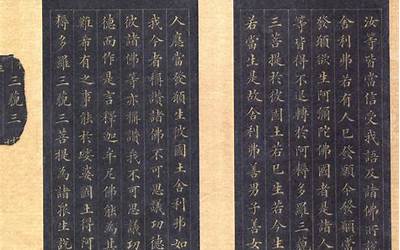 汝等皆當信受我語及諸佛所
舍利弗若有人已發願今發願當
發願欲生阿彌陀佛國者是諸人
等皆得不退轉於阿耨多羅三藐
三菩提於彼國土若已生若今生
若當生是故舍利弗善男子善女
人應當發願生彼國土舍利弗如
我今者稱讚諸佛不可思議功德
彼諸佛等亦稱讚我不可思議功
德而作是言釋迦牟尼佛能為甚
難希有之事能於娑婆國土得阿
耨多羅三藐三菩提為諸眾生說
三藐三